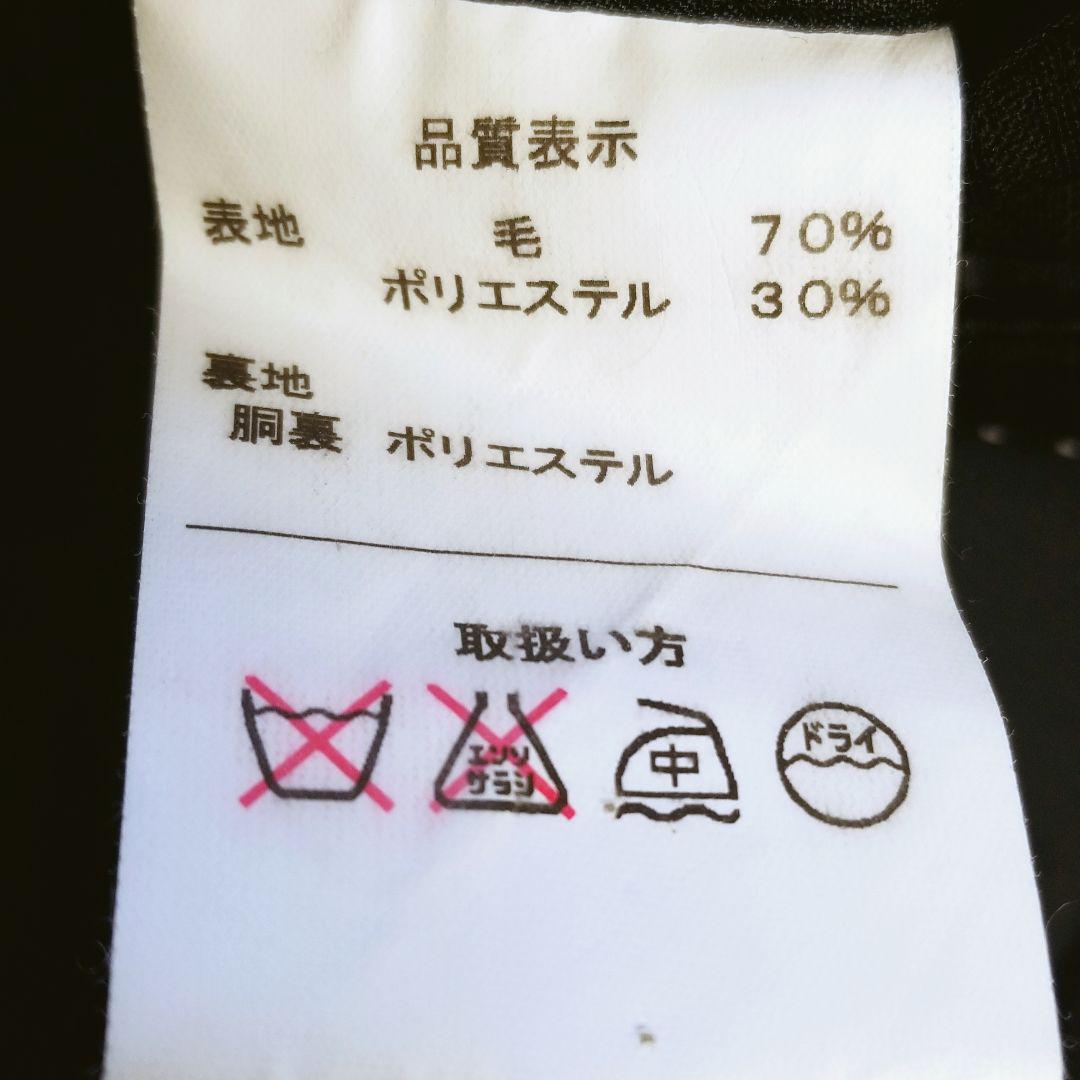 品質表示
表地 毛 70%
ポリエステル 30%
裏地
胴裏 ポリエステル
取扱い方
エンソ
サラシ
中
ドライ